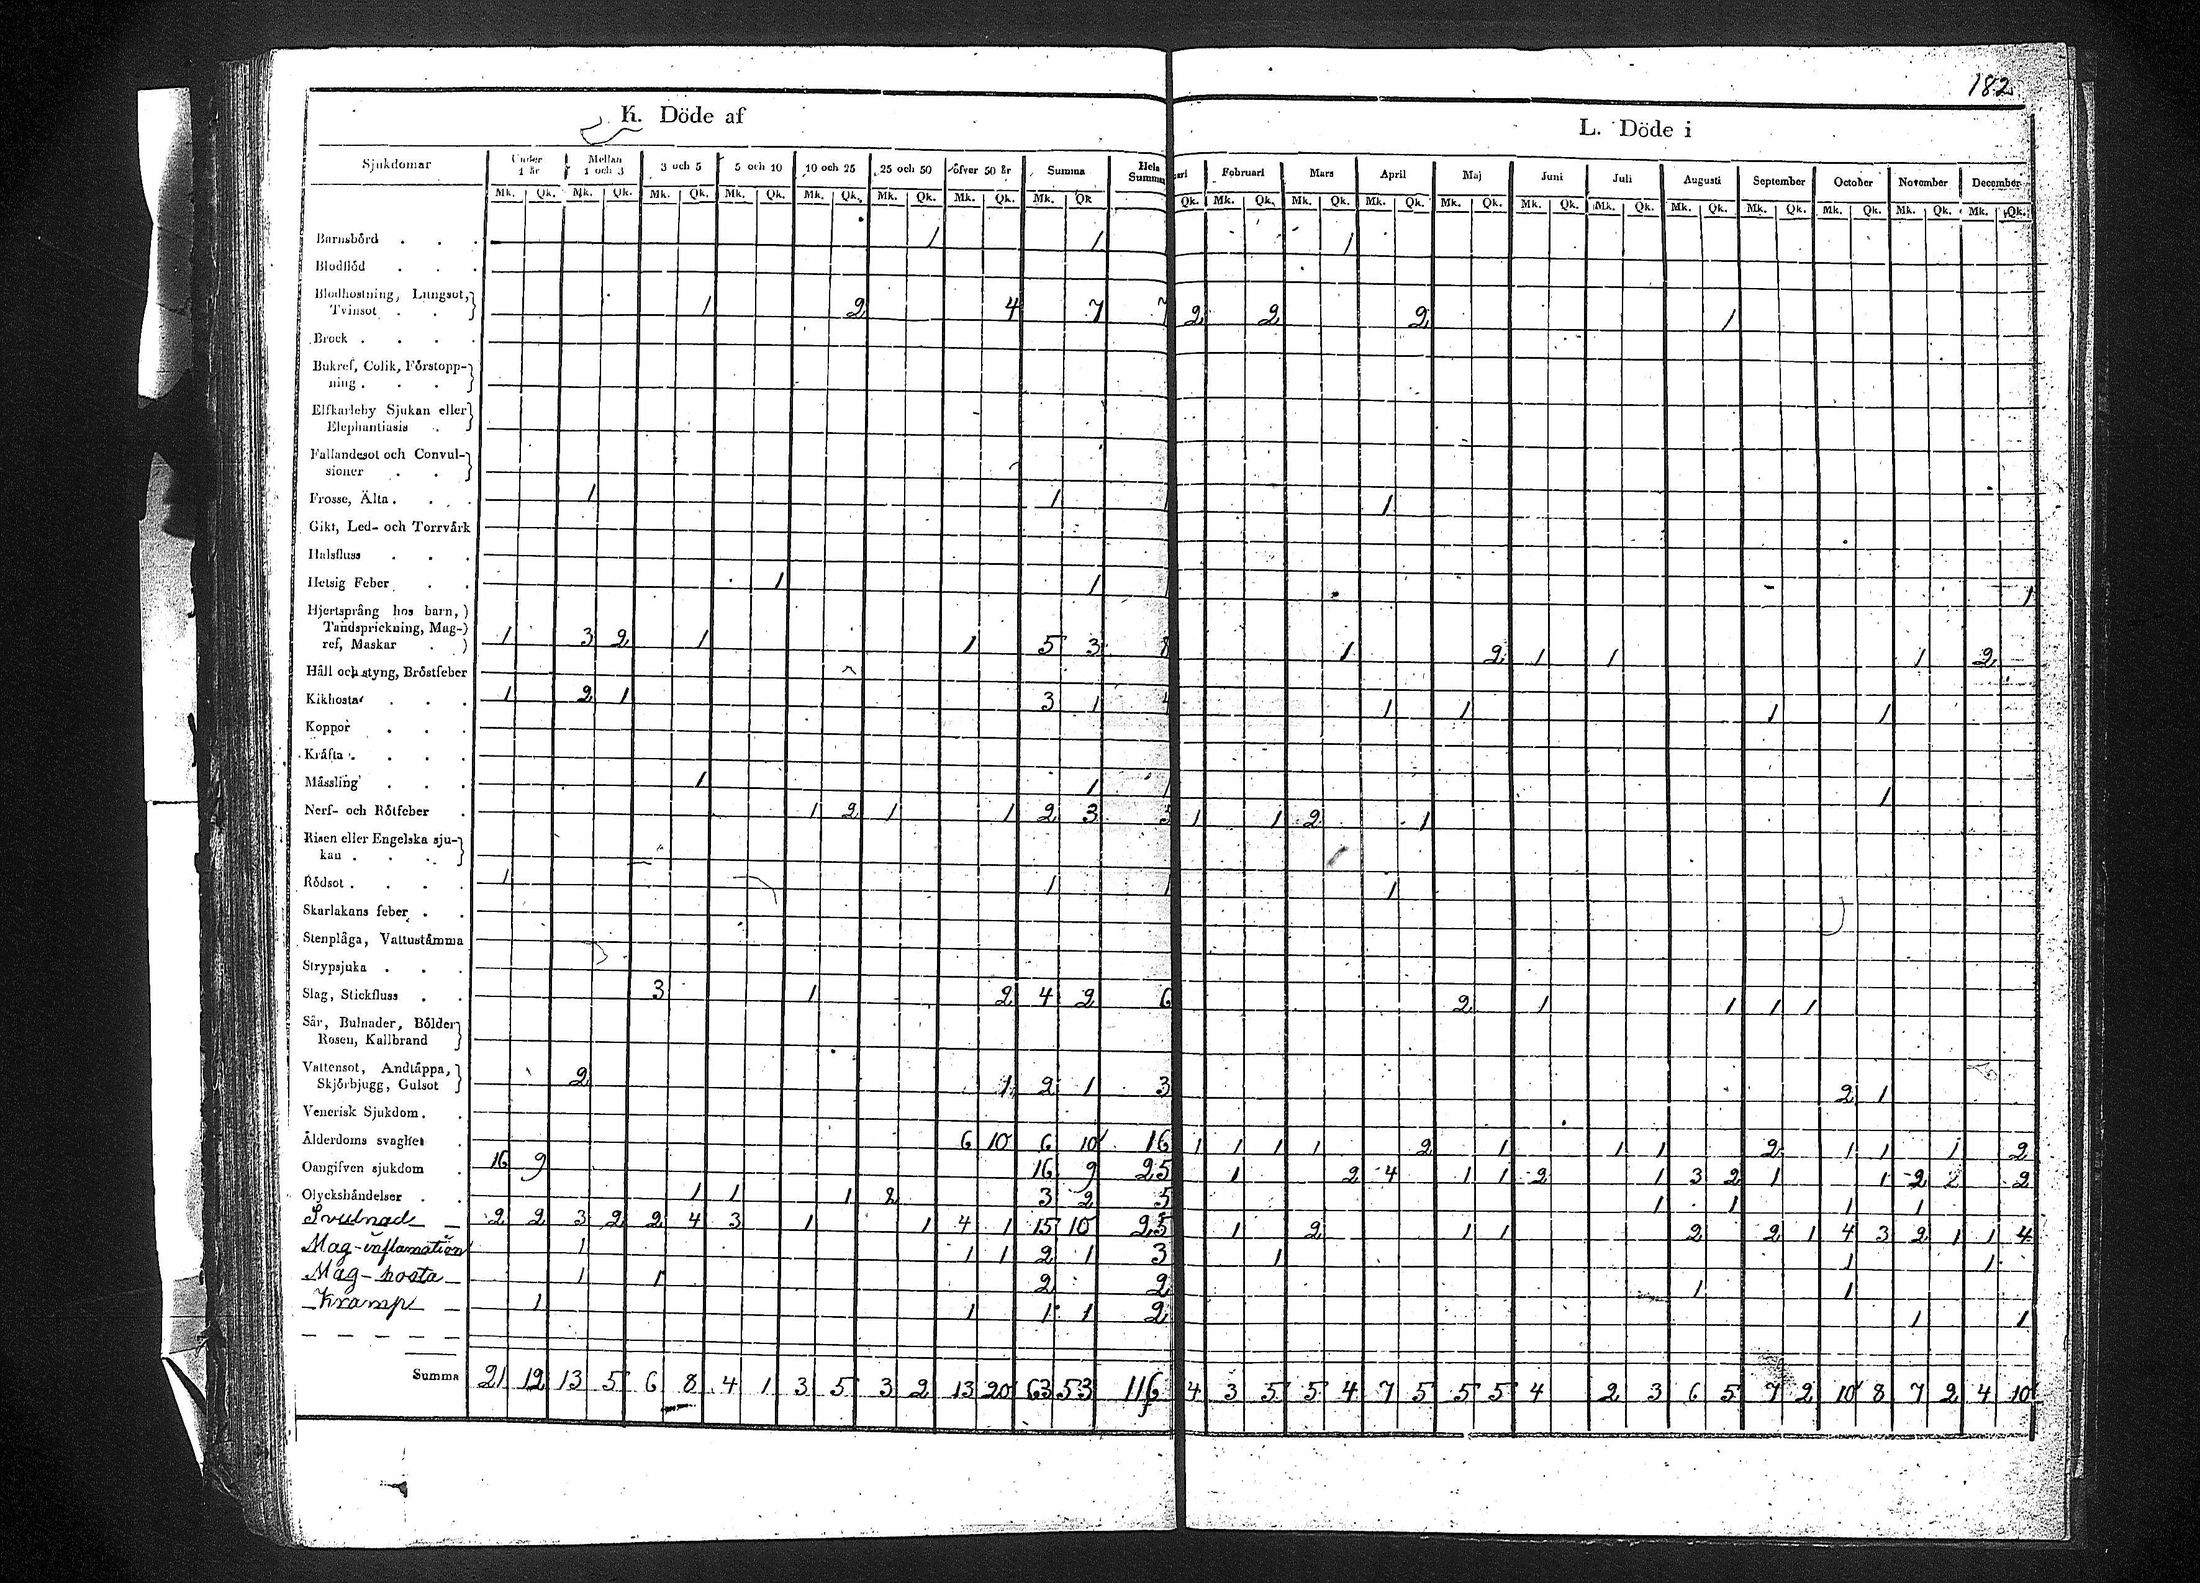 182
K. Döde af
L. Döde i
Sjukdomar Under 1 år Mellan 1 och 3 3 och 5 5 och 10 10 och 25 25 och 50 öfver 50 år Summa Hela Summan Februari Mars April Maj Juni Juli Augusti September October November December
Mk. Qk. Mk. Qk. Mk. Qk. Mk. Qk. Mk. Qk. Mk. Qk. Mk. Qk. Mk. Qk Qk. Mk. Qk. Mk. Qk. Mk. Qk. Mk. Qk. Mk. Qk. Mk. Qk. Mk. Qk. Mk. Qk. Mk. Qk. Mk. Qk. Mk. Qk.
Barnsbörd . . . 1 1 1
Blodflöd . . .
Blodhostning, Lungsot,
Tvinsot . . 1 2 4 7 7 2 2 2 1
Brock . . . .
Bukref, Colik, Förstopp-
ning . . .
Elfkarleby Sjukan eller
Elephantiasis .
Fallandesot och Convul-
sioner . .
Frosse, Älta . . . 1 1 1 1
Gikt, Led- och Torrvärk
Halsfluss . . .
Hetsig Feber . . 1 1 1
Hjertsprång hos barn,
Tandsprickning, Mag-
ref, Maskar . 1 3 2 1 1 5 3 8 1 2 1 1 1 2
Håll och styng, Bröstfeber
Kikhosta . . . 1 2 1 3 1 4 1 1 1 1
Koppor . . .
Kräfta . . . .
Mässling . . . 1 1 1 1
Nerf- och Rötfeber . 1 2 1 1 2 3 5 1 1 2 1
Risen eller Engelska sju-
kan . . . .
Rödsot . . . . 1 1 1 1
Skarlakans feber . .
Stenplåga, Vattustämma
Strypsjuka . . .
Slag, Stickfluss . . 3 1 2 4 2 6 2 1 1 1 1
Sår, Bulnader, Bölder
Rosen, Kallbrand
Vattensot, Andtäppa,
Skjörbjugg, Gulsot 2 1 2 1 3 2 1
Venerisk Sjukdom . .
Ålderdoms svaghet . 6 10 6 10 16 1 1 1 1 2 1 1 1 2 1 1 1 2
Oangifven sjukdom . 16 9 16 9 25 1 2 4 1 1 2 1 3 2 1 1 2 2 2
Olyckshändelser . . 1 1 1 2 3 2 5 1 1 1 1
Svulnad 2 2 3 2 2 4 3 1 1 4 1 15 10 25 1 2 1 1 2 2 1 4 3 2 1 1 4
Mag-inflamation 1 1 1 2 1 3 1 1 1
Mag-hosta 1 1 2 2 1 1
Kramp 1 1 1 1 2 1 1
Summa 21 12 13 5 6 8 4 1 3 5 3 2 13 20 63 53 116 4 3 5 5 4 7 5 5 5 4 2 3 6 5 7 2 10 8 7 2 4 10